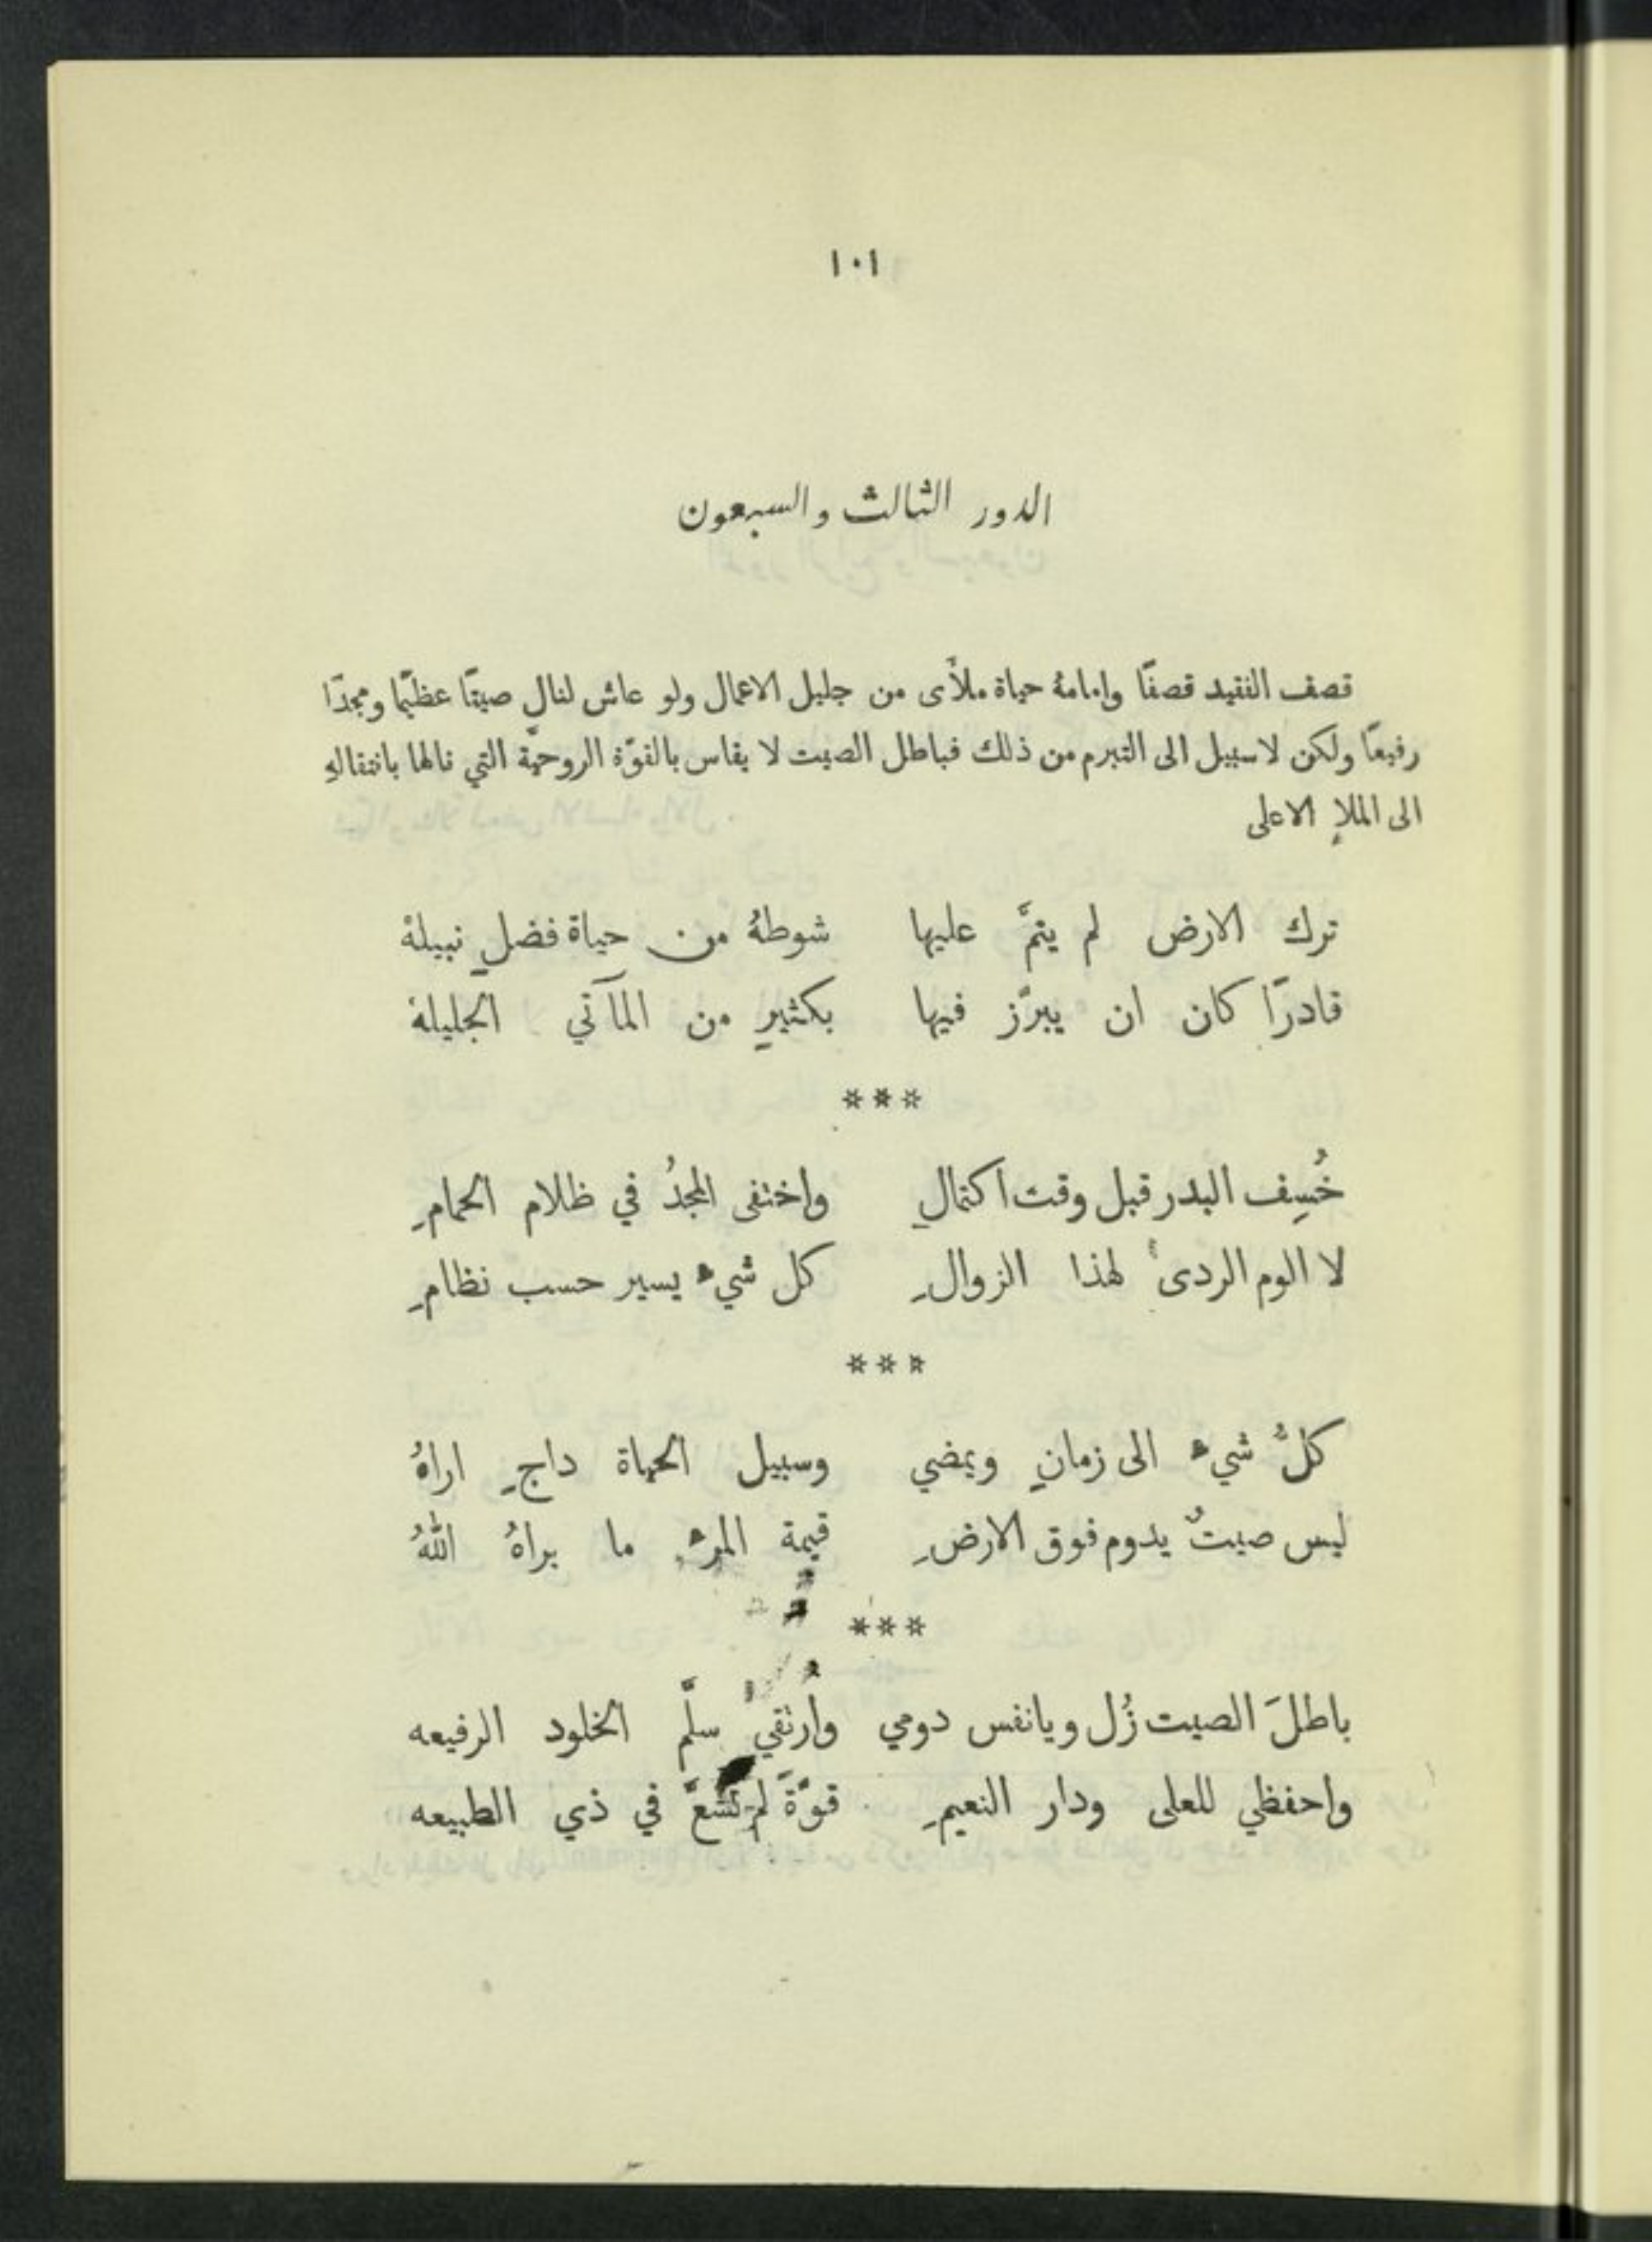 ١٠١
الدور الثالث والسبعون
قصف الفقيد قصفًا وامامهُ حياة ملأى من جليل الاعمال ولو عاش لنال صيتًا عظيمًا ومجدًا
رفيعًا ولكن لا سبيل الى التبرم من ذلك فباطل الصيت لا يقاس بالقوّة الروحيّة التي نالها بانتقالهِ
الى الملإِ الاعلى
ترك الارض لم يتمَّ عليها شوطهُ من حياة فضلٍ نبيلهْ
قادرًا كان ان يبرّز فيها بكثيرٍ من المآتي الجليلهْ
***
خُسِف البدر قبل وقت اكتمالِ واختفى المجدُ في ظلام الحمامِ
لا الوم الردى لهذا الزوالِ كل شيء يسير حسب نظامِ
***
كلُّ شيء الى زمانٍ ويمضي وسبيل الحياة داجٍ اراهُ
ليس صيتٌ يدوم فوق الارضِ قيمة المرء ما براهُ اللهُ
***
باطلَ الصيت زُل ويا نفس دومي وارتقي سلّم الخلود الرفيعه
واحفظي للعلى ودار النعيمِ قوَّةً لم تشعَّ في ذي الطبيعه